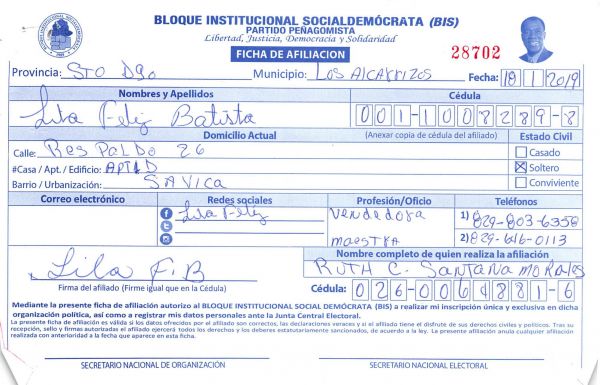 BLOQUE INSTITUCIONAL SOCIALDEMÓCRATA (BIS)
PARTIDO PEÑAGOMISTA
Libertad, Justicia, Democracia y Solidaridad
FICHA DE AFILIACION
28702
Provincia: STO Dgo Municipio: Los Alcarrizos Fecha: 18 1 2019
Nombres y Apellidos Cédula
Lila Feliz Batista 001-1008289-8
Domicilio Actual (Anexar copia de cédula del afiliado) Estado Civil
Calle: Respaldo 26 Casado
#Casa / Apt. / Edificio: APTLD Soltero
Barrio / Urbanización: SAVICA Conviviente
Correo electrónico Redes sociales Profesión/Oficio Teléfonos
Lila Feliz Vendedora 1) 829-803-6358
maestra 2) 829-646-0113
Lila F.B
Firma del afiliado (Firme igual que en la Cédula)
Nombre completo de quien realiza la afiliación
RUTH C. Santana Morales
Cédula: 026-0064881-6
Mediante la presente ficha de afiliación autorizo al BLOQUE INSTITUCIONAL SOCIAL DEMÓCRATA (BIS) a realizar mi inscripción única y exclusiva en dicha
organización política, así como a registrar mis datos personales ante la Junta Central Electoral.
La presente ficha de afiliación es válida si los datos ofrecidos por el afiliado son correctos, las declaraciones veraces y si el afiliado tiene el disfrute de sus derechos civiles y políticos. Tras su
recepción, sello y firmas autorizadas el afiliado ejercerá todos los derechos y los deberes estatutariamente sancionados, de acuerdo a la ley. La presente afiliación anula cualquier afiliación
realizada con anterioridad a la fecha que aparece en esta ficha.
SECRETARIO NACIONAL DE ORGANIZACIÓN SECRETARIO NACIONAL ELECTORAL